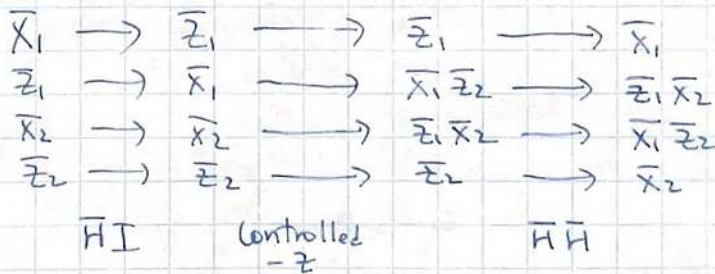 X̄₁ → Z̄₁ → Z̄₁ → X̄₁
Z̄₁ → X̄₁ → X̄₁ Z̄₂ → Z̄₁ X̄₂
X̄₂ → X̄₂ → Z̄₁ X̄₂ → X̄₁ Z̄₂
Z̄₂ → Z̄₂ → Z̄₂ → X̄₂
H̄ I Controlled H̄ H̄
-Z